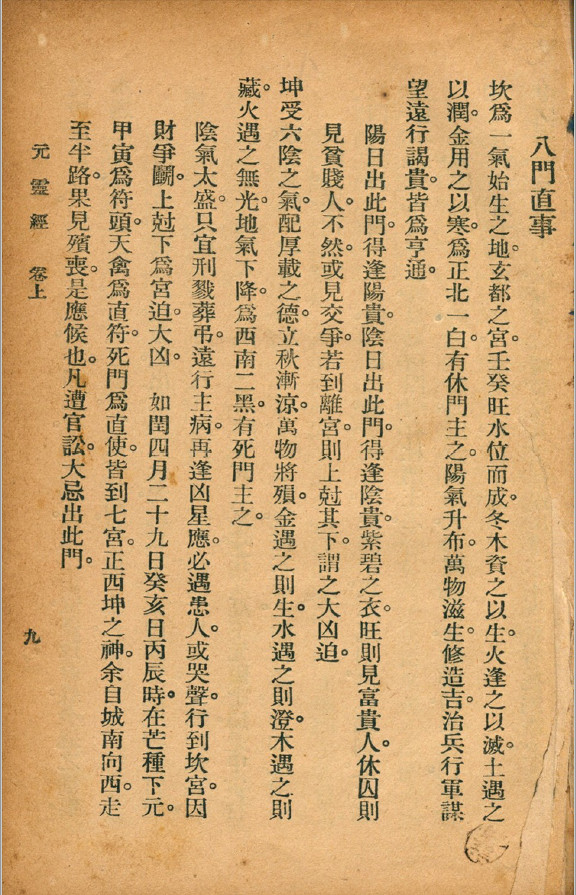 八門直事
坎爲一氣始生之地。玄都之宮。壬癸旺水位而成。冬木資之以生。火逢之以滅。土遇之
以潤。金用之以寒。爲正北一白。有休門主之。陽氣升布。萬物滋生。修造吉。治兵行軍謀
望遠行謁貴。皆爲亨通。
陽日出此門。得逢陽貴。陰日出此門。得逢陰貴。紫碧之衣。旺則見富貴人。休囚則
見貧賤人。不然或見交爭。若到離宮。則上尅其下。謂之大凶迫。
坤受六陰之氣。配厚載之德。立秋漸涼。萬物將殞。金遇之則生。水遇之則澄。木遇之則
藏。火遇之無光。地氣下降。爲西南二黑。有死門主之。
陰氣太盛。只宜刑戮葬弔。遠行主病。再逢凶星。應必遇患人。或哭聲。行到坎宮。因
財爭鬭。上尅下爲宮迫。大凶。 如閏四月二十九日癸亥日丙辰時。在芒種下元。
甲寅爲符頭。天禽爲直符。死門爲直使。皆到七宮。正西坤之神。余自城南向西。走
至半路。果見殯喪。是應候也。凡遭官訟。大忌出此門。
元靈經 卷上
九